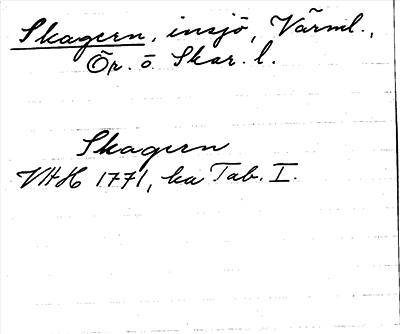 Skagern, insjö, Värml.,
Ör. o Skar. l.
Skagern
VAH 1771, ka Tab. I.